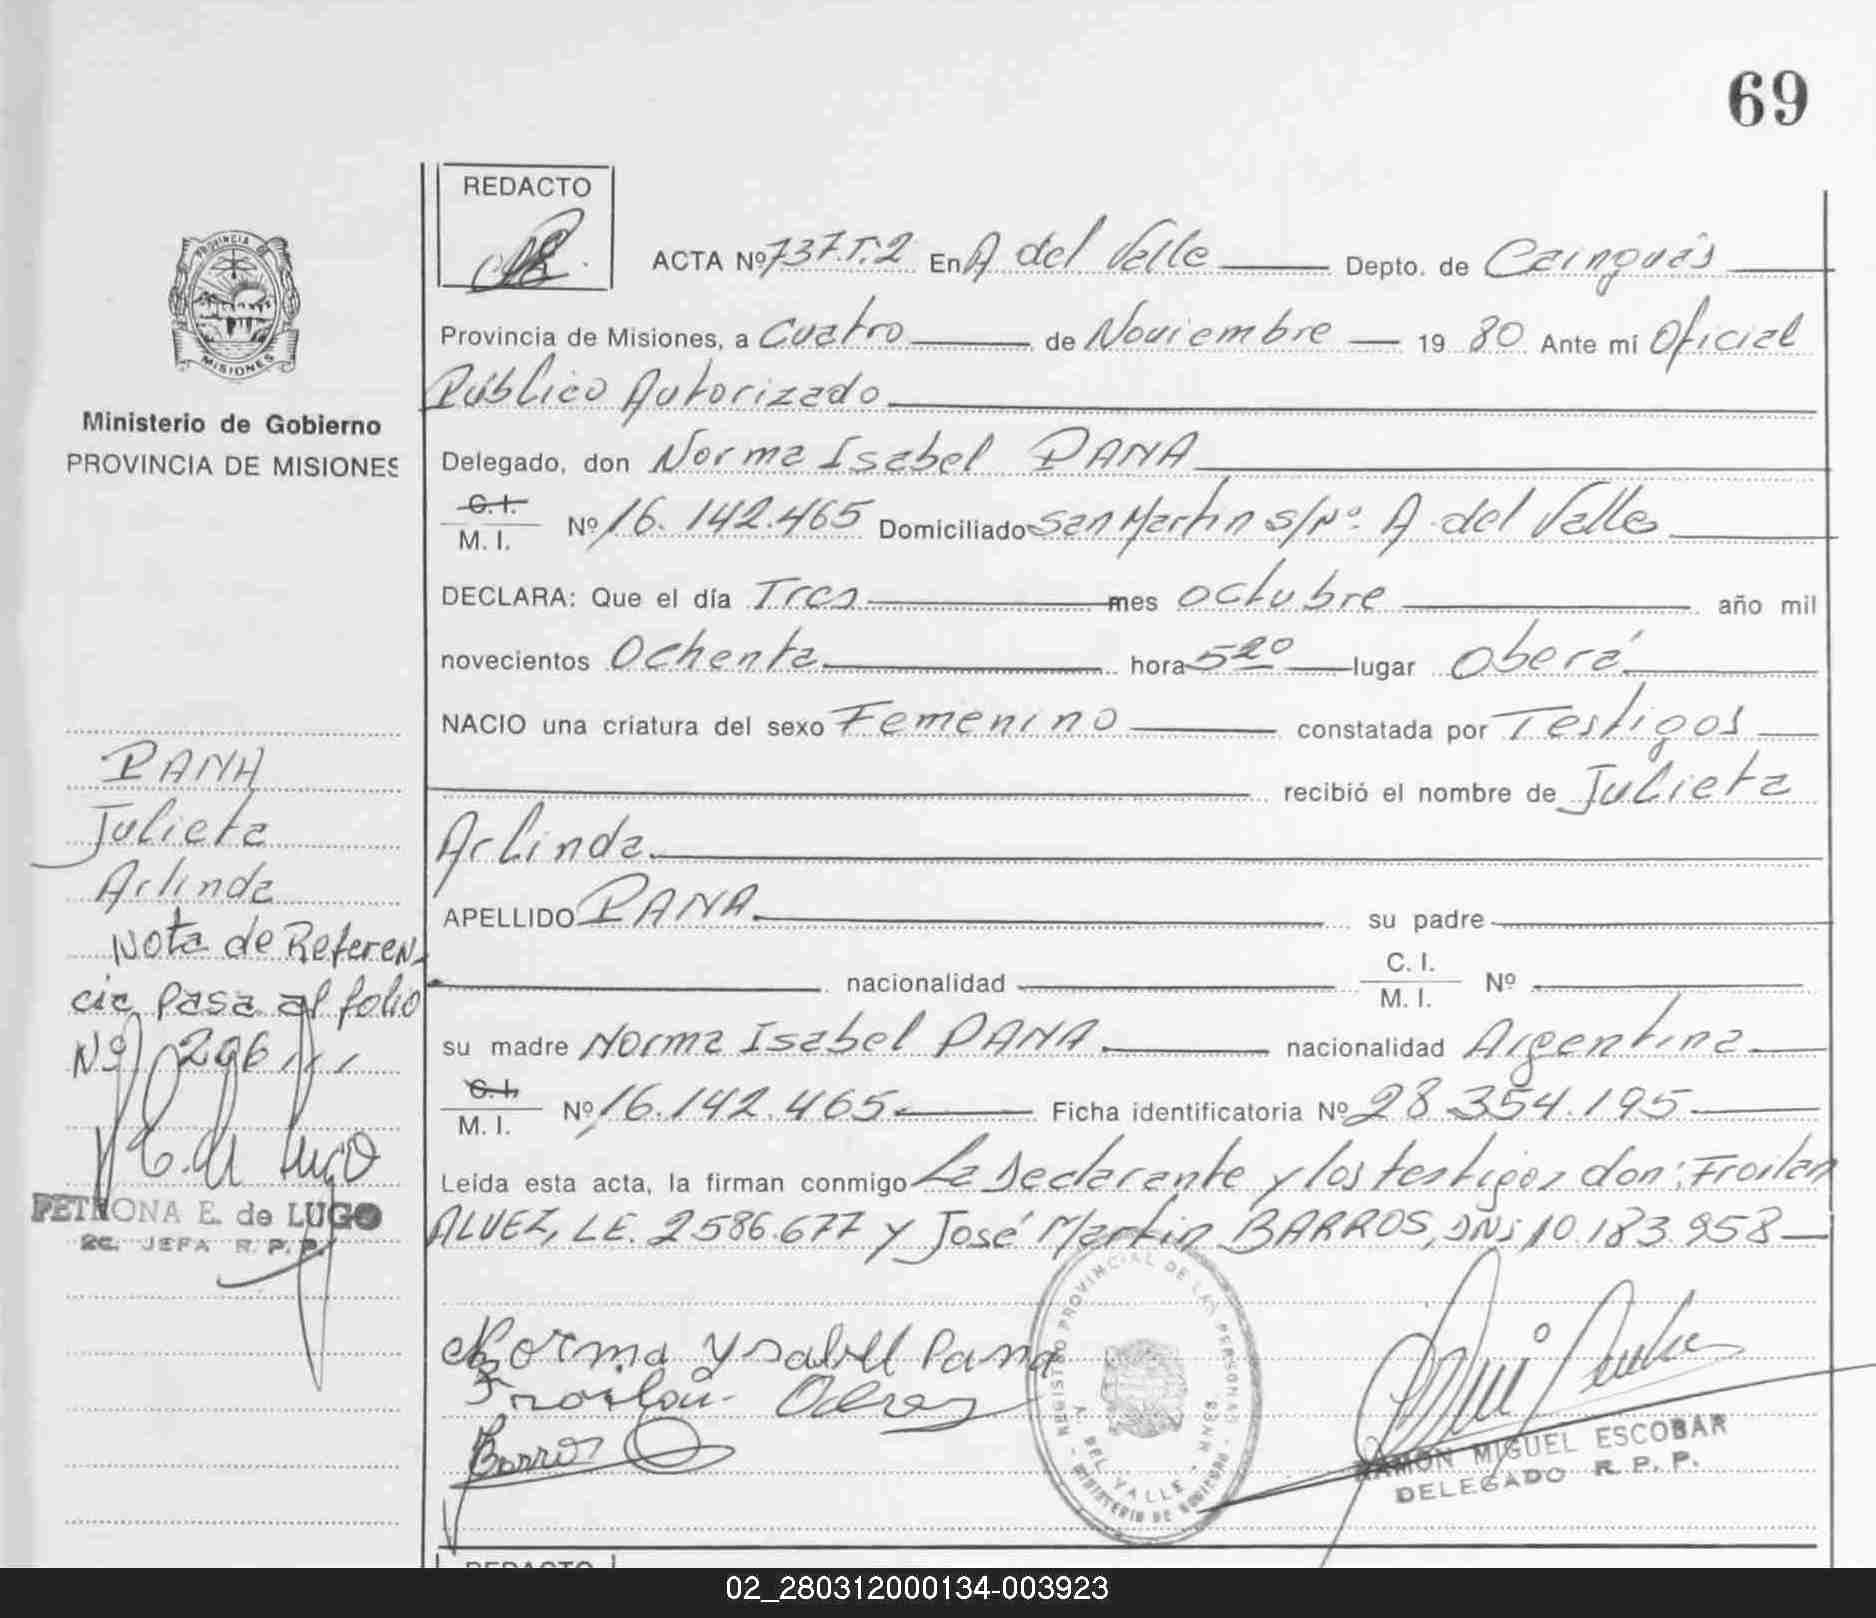 69
REDACTO
ACTA Nº 737.T.2 En A del Valle Depto. de Cainguás
Provincia de Misiones, a Cuatro de Noviembre 19 80 Ante mi Oficial
Público Autorizado
Delegado, don Norma Isabel PANA
C.I.
M. I. Nº 16.142.465 Domiciliado San Martin s/Nº. A. del Valle
DECLARA: Que el día Tres mes octubre año mil
novecientos Ochenta hora 5 20 lugar Oberá
NACIO una criatura del sexo Femenino constatada por Testigos
recibió el nombre de Julieta
Arlinda
APELLIDO PANA su padre
nacionalidad C. I. M. I. Nº
su madre Norma Isabel PANA nacionalidad Argentina
C.I.
M. I. Nº 16.142.465 Ficha identificatoria Nº 28.354.195
Leída esta acta, la firman conmigo La Declarante y los testigos don: Froilan
ALVEZ, LE. 2586.677 y José Martin BARROS, DNI 10.183.958
Norma Ysabell Pana
Froilan
Barros
REGISTRO PROVINCIAL DE LAS PERSONAS
A. DEL VALLE - MNES
MINISTERIO DE GOBIERNO
RAMON MIGUEL ESCOBAR
DELEGADO R. P. P.
PROVINCIA DE
MISIONES
Ministerio de Gobierno
PROVINCIA DE MISIONES
PANA
Julieta
Arlinda
Nota de Referen
cia Pasa al folio
Nº 296
PETRONA E. de LUGO
2c. JEFA R. P. P.
REDACTO
02_280312000134-003923